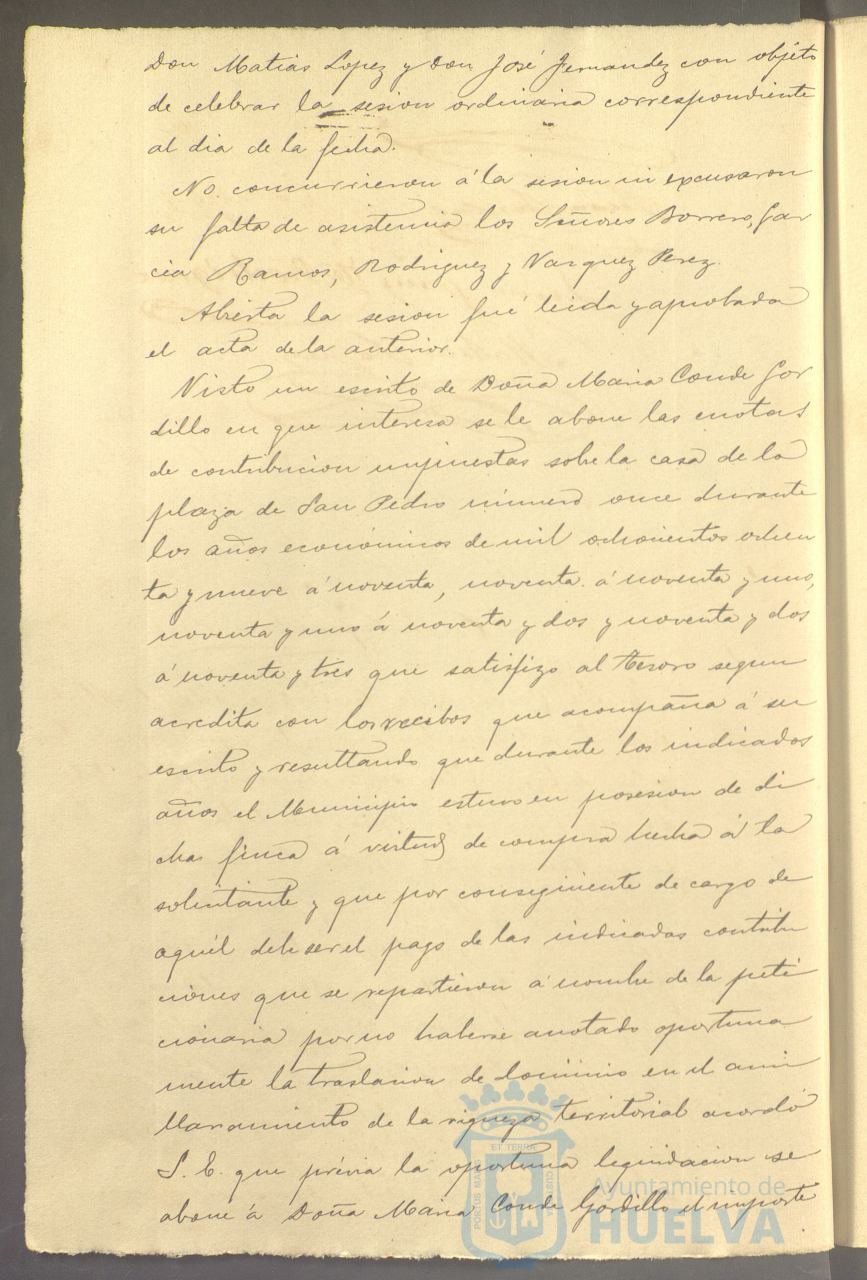 Don Matias Lopez y Don José Fernandez con objeto
de celebrar la sesion ordinaria correspondiente
al dia de la fecha.
No concurrieron á la sesion ni excusaron
su falta de asistencia los Señores Borrero, Gar
cia Ramos, Rodriguez y Vazquez Perez.
Abierta la sesion fué leida y aprobada
el acta de la anterior.
Visto un escrito de Doña Maria Conde Gor
dillo en que interesa se le abone las cuotas
de contribucion impuestas sobre la casa de la
plaza de San Pedro número once durante
los años económicos de mil ochocientos ochen
ta y nueve á noventa, noventa á noventa y uno,
noventa y uno á noventa y dos y noventa y dos
á noventa y tres que satisfizo al Tesoro segun
acredita con los recibos que acompaña á su
escrito y resultando que durante los indicados
años el Municipio estuvo en posesion de di
cha finca á virtud de compra hecha á la
solicitante y que por consiguiente de cargo de
aquél debe ser el pago de las indicadas contribu
ciones que se repartieron á nombre de la peti
cionaria por no haberse anotado oportuna
mente la traslacion de dominio en el ami
llaramiento de la riqueza territorial acordó
S. E. que prévia la oportuna liquidacion se
abone á Doña Maria Conde Gordillo el importe
PORTUS MARIS ET TERRAE CUSTODIA
Ayuntamiento de
HUELVA